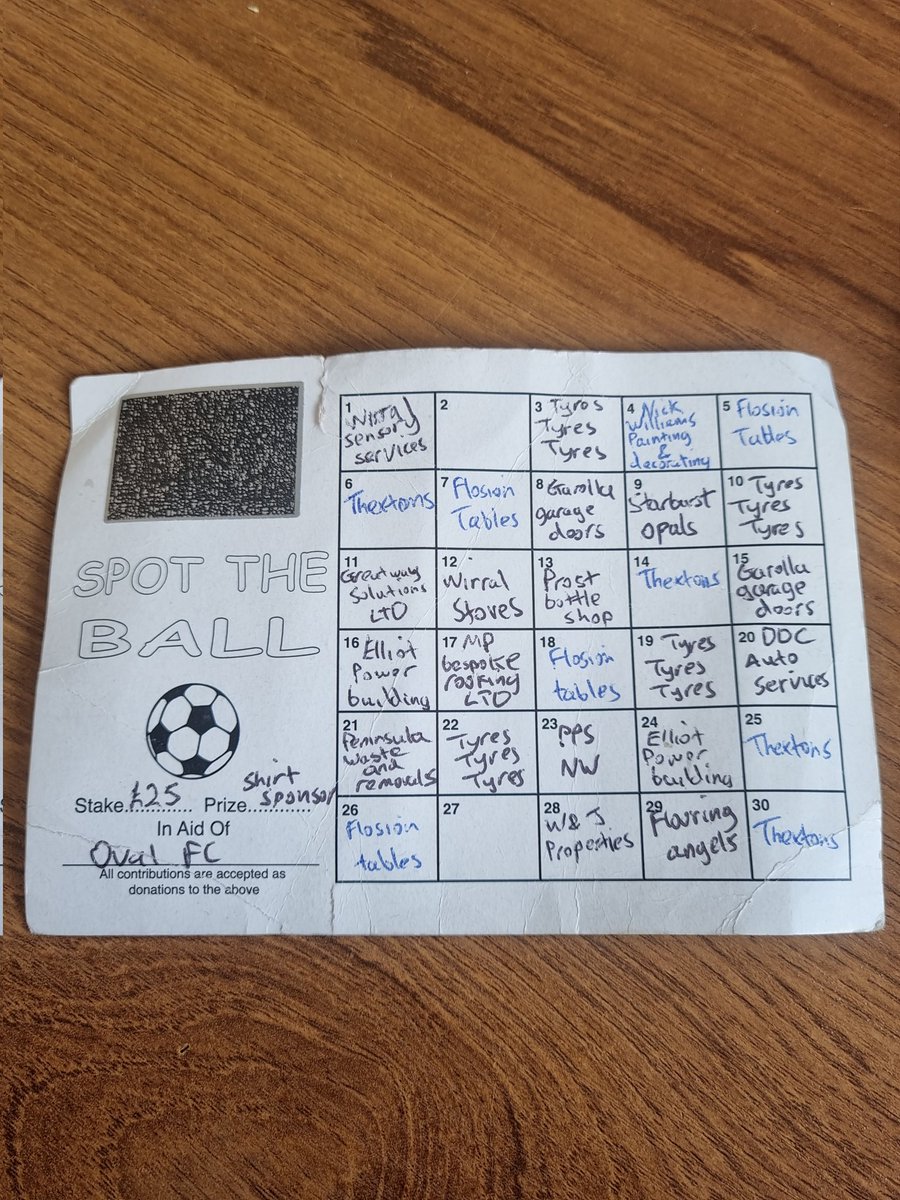 SPOT THE
BALL
Stake £25 Prize shirt sponsor
In Aid Of
Oval FC
All contributions are accepted as
donations to the above
1 Wirral
sensory
services
2
3 Tyros
Tyres
Tyres
4 Nick
Williams
Painting
&
decorating
5 Flosion
Tables
6
Thextons
7 Flosion
Tables
8 Garolla
garage
doors
9
Starburst
opals
10 Tyres
Tyres
Tyres
11
Greatway
Solutions
LTD
12
Wirral
Stoves
13
Prost
bottle
shop
14
Thextons
15
Garolla
garage
doors
16 Elliot
Power
building
17 MP
bespoke
roofing
LTD
18
Flosion
tables
19 Tyres
Tyres
Tyres
20 DDC
Auto
Services
21
Peninsula
waste
and
removals
22
Tyres
Tyres
Tyres
23 PPS
NW
24
Elliot
Power
building
25
Thextons
26
Flosion
tables
27
28
W&J
Properties
29
angels
30
Thextons